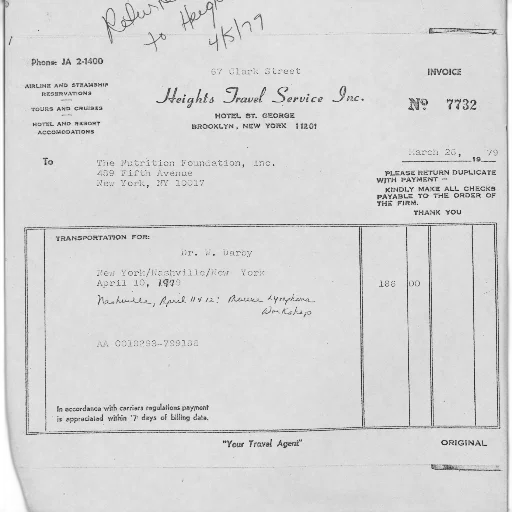 Return
to Heights
4/5/79
Phone: JA 2-1400
67 Clark Street
INVOICE
AIRLINE AND STEAMSHIP
RESERVATIONS
TOURS AND CRUISES
HOTEL AND RESORT
ACCOMODATIONS
Heights Travel Service Inc.
HOTEL ST. GEORGE
BROOKLYN, NEW YORK 11201
Nº 7732
March 26, 1979
To The Nutrition Foundation, Inc.
489 Fifth Avenue
New York, NY 10017
PLEASE RETURN DUPLICATE
WITH PAYMENT —
KINDLY MAKE ALL CHECKS
PAYABLE TO THE ORDER OF
THE FIRM.
THANK YOU
TRANSPORTATION FOR:
Dr. W. Darby
New York/Nashville/New York
April 10, 1979 186 00
Nashville, April 11 & 12:
Workshop
AA
In accordance with carriers regulations payment
is appreciated within '7' days of billing date.
"Your Travel Agent"
ORIGINAL